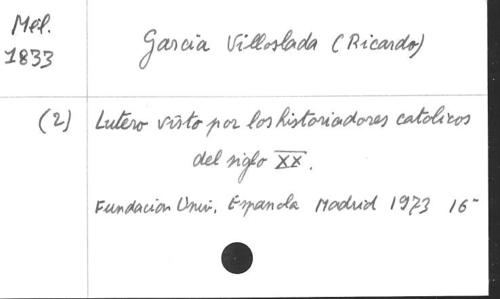 Mél.
1833
Garcia Villoslada (Ricardo)
(2) Lutero visto por los historiadores catolicos
del siglo XX.
Fundacion Univ. Espanola Madrid 1973 16-